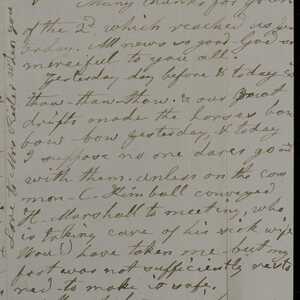 Many thanks for yours
of the 2d which reached us
today. All news so good God is
merciful to you all.
Yesterday day before & today is
thaw-thaw-thaw. & our great
drifts made the horses bow
bow-bow yesterday, & today
I suppose no one dares go out
with them. unless on the com
mon - C. Kimball conveyed
H. Marshall to meeting, who
is taking care of his sick wife
Wou'd have taken me - but my
post was not sufficiently resto
red to make it safe.